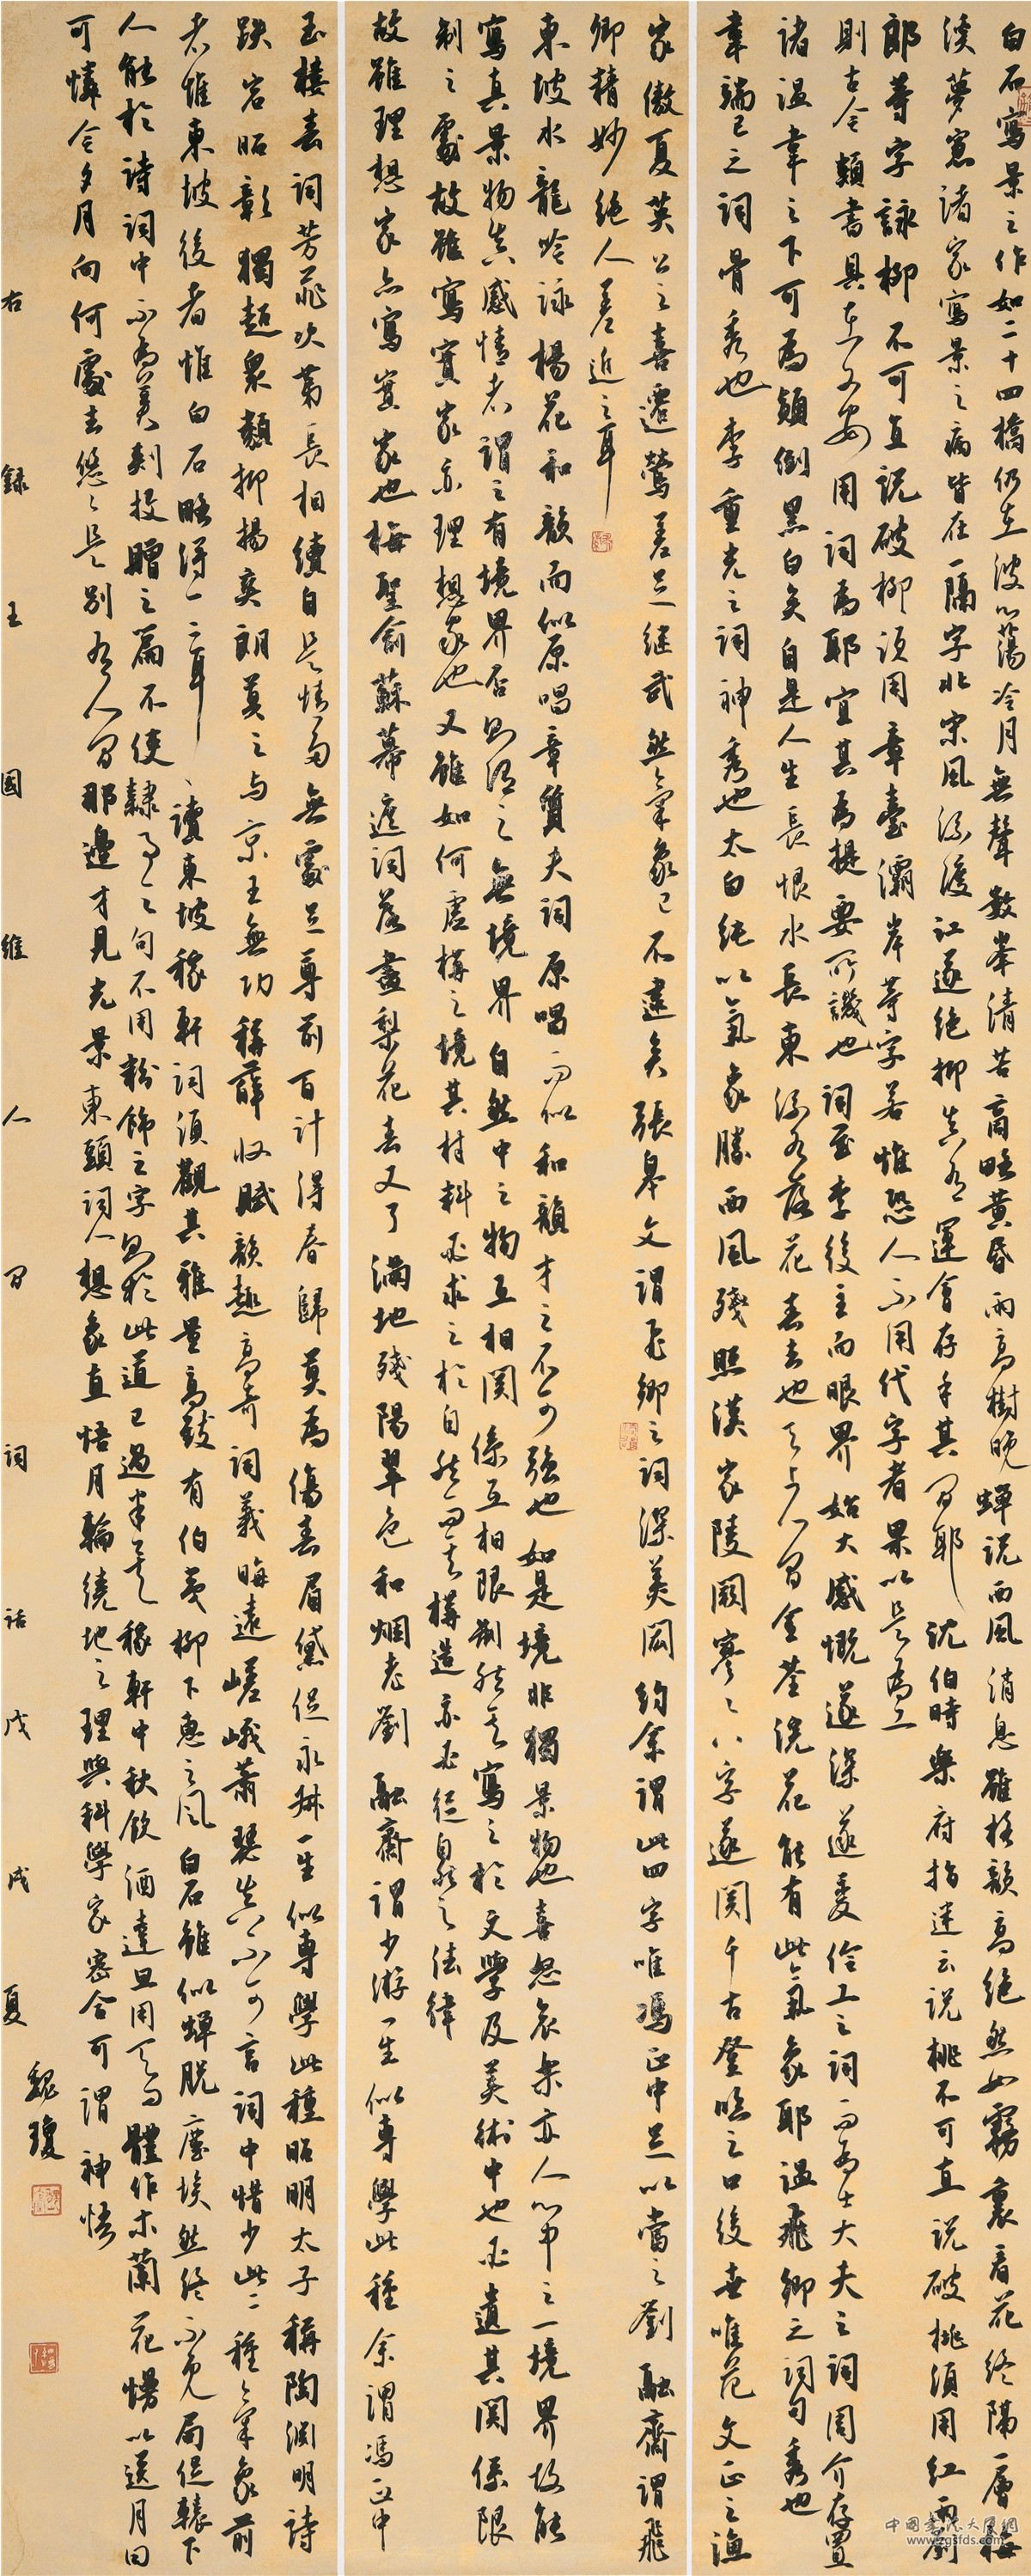 白石寫景之作如二十四橋仍在波心蕩冷月無聲數峯清苦商略黄昏雨高樹晚蟬說西風消息雖格韻高絕然如霧裏看花終隔一層梅
溪夢窗諸家寫景之病皆在一隔字北宋風流渡江遂絕抑真有運會存乎其間耶沈伯時樂府指迷云說桃不可直說破桃須用紅雨劉
郎等字詠柳不可直說破柳須用章臺灞岸等字若惟恐人不用代字者果以是為工
則古今類書具在又安用詞為耶宜其為提要所譏也詞至李後主而眼界始大感慨遂深遂變伶工之詞而為士大夫之詞周介存置
諸溫韋之下可為顛倒黑白矣自是人生長恨水長東流水落花春去也天上人間金荃浣花能有此氣象耶溫飛卿之詞句秀也
韋端己之詞骨秀也李重光之詞神秀也太白純以氣象勝西風殘照漢家陵闕寥寥八字遂関千古登臨之口後世唯范文正之漁
家傲夏英公之喜遷鶯差足继武然氣象已不逮矣張皋文謂飛卿之詞深美閎約余謂此四字唯馮正中足以當之劉融齋謂飛
卿精妙絕人差近之耳
東坡水龍吟詠楊花和韻而似原唱章質夫詞原唱而似和韻才之不可強也如是境非獨景物也喜怒哀樂亦人心中之一境界故能
寫真景物真感情者謂之有境界否則謂之無境界自然中之物互相関係互相限制然其寫之於文學及美術中也必遺其関係限
制之處故雖寫實家亦理想家也又雖如何虛構之境其材料必求之於自然而其構造亦必從自然之法律
故雖理想家亦寫實家也梅聖俞蘇幕遮詞落盡梨花春又了滿地殘陽翠色和烟老劉融齋謂少游一生似專學此種余謂馮正中
玉樓春詞芳菲次第長相續自是情多無處足尊前百計得春歸莫為傷春眉黛促永叔一生似專學此種昭明太子稱陶淵明詩
跌宕昭彰獨超衆類抑揚爽朗莫之與京王無功稱薛收賦韻趣高奇詞義晦遠嵯峨蕭瑟真不可言詞中惜少此二種氣象前
者惟東坡後者惟白石略得一二耳讀東坡稼軒詞須觀其雅量高致有伯夷柳下惠之風白石雖似蟬脫塵埃然終不免局促轅下
人能於詩詞中不為美刺投贈之篇不使隸事之句不用粉飾之字則於此道已過半矣稼軒中秋飲酒達旦用天問體作木蘭花慢以送月曰
可憐今夕月向何處去悠悠是別有人間那邊才見光景東頭詞人想象直悟月輪繞地之理與科學家密合可謂神悟
右錄王國維人間詞話戊戌夏
魏瓊
中国书法大展网
www.zgsfds.com